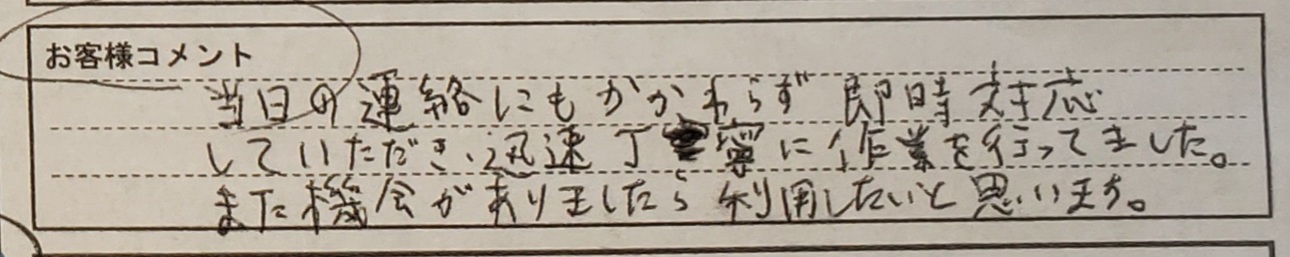 お客様コメント
当日の運絡にもかかわらず 即時対応
していただき、迅速丁寧に作業を行ってました。
また機会がありましたら利用したいと思います。